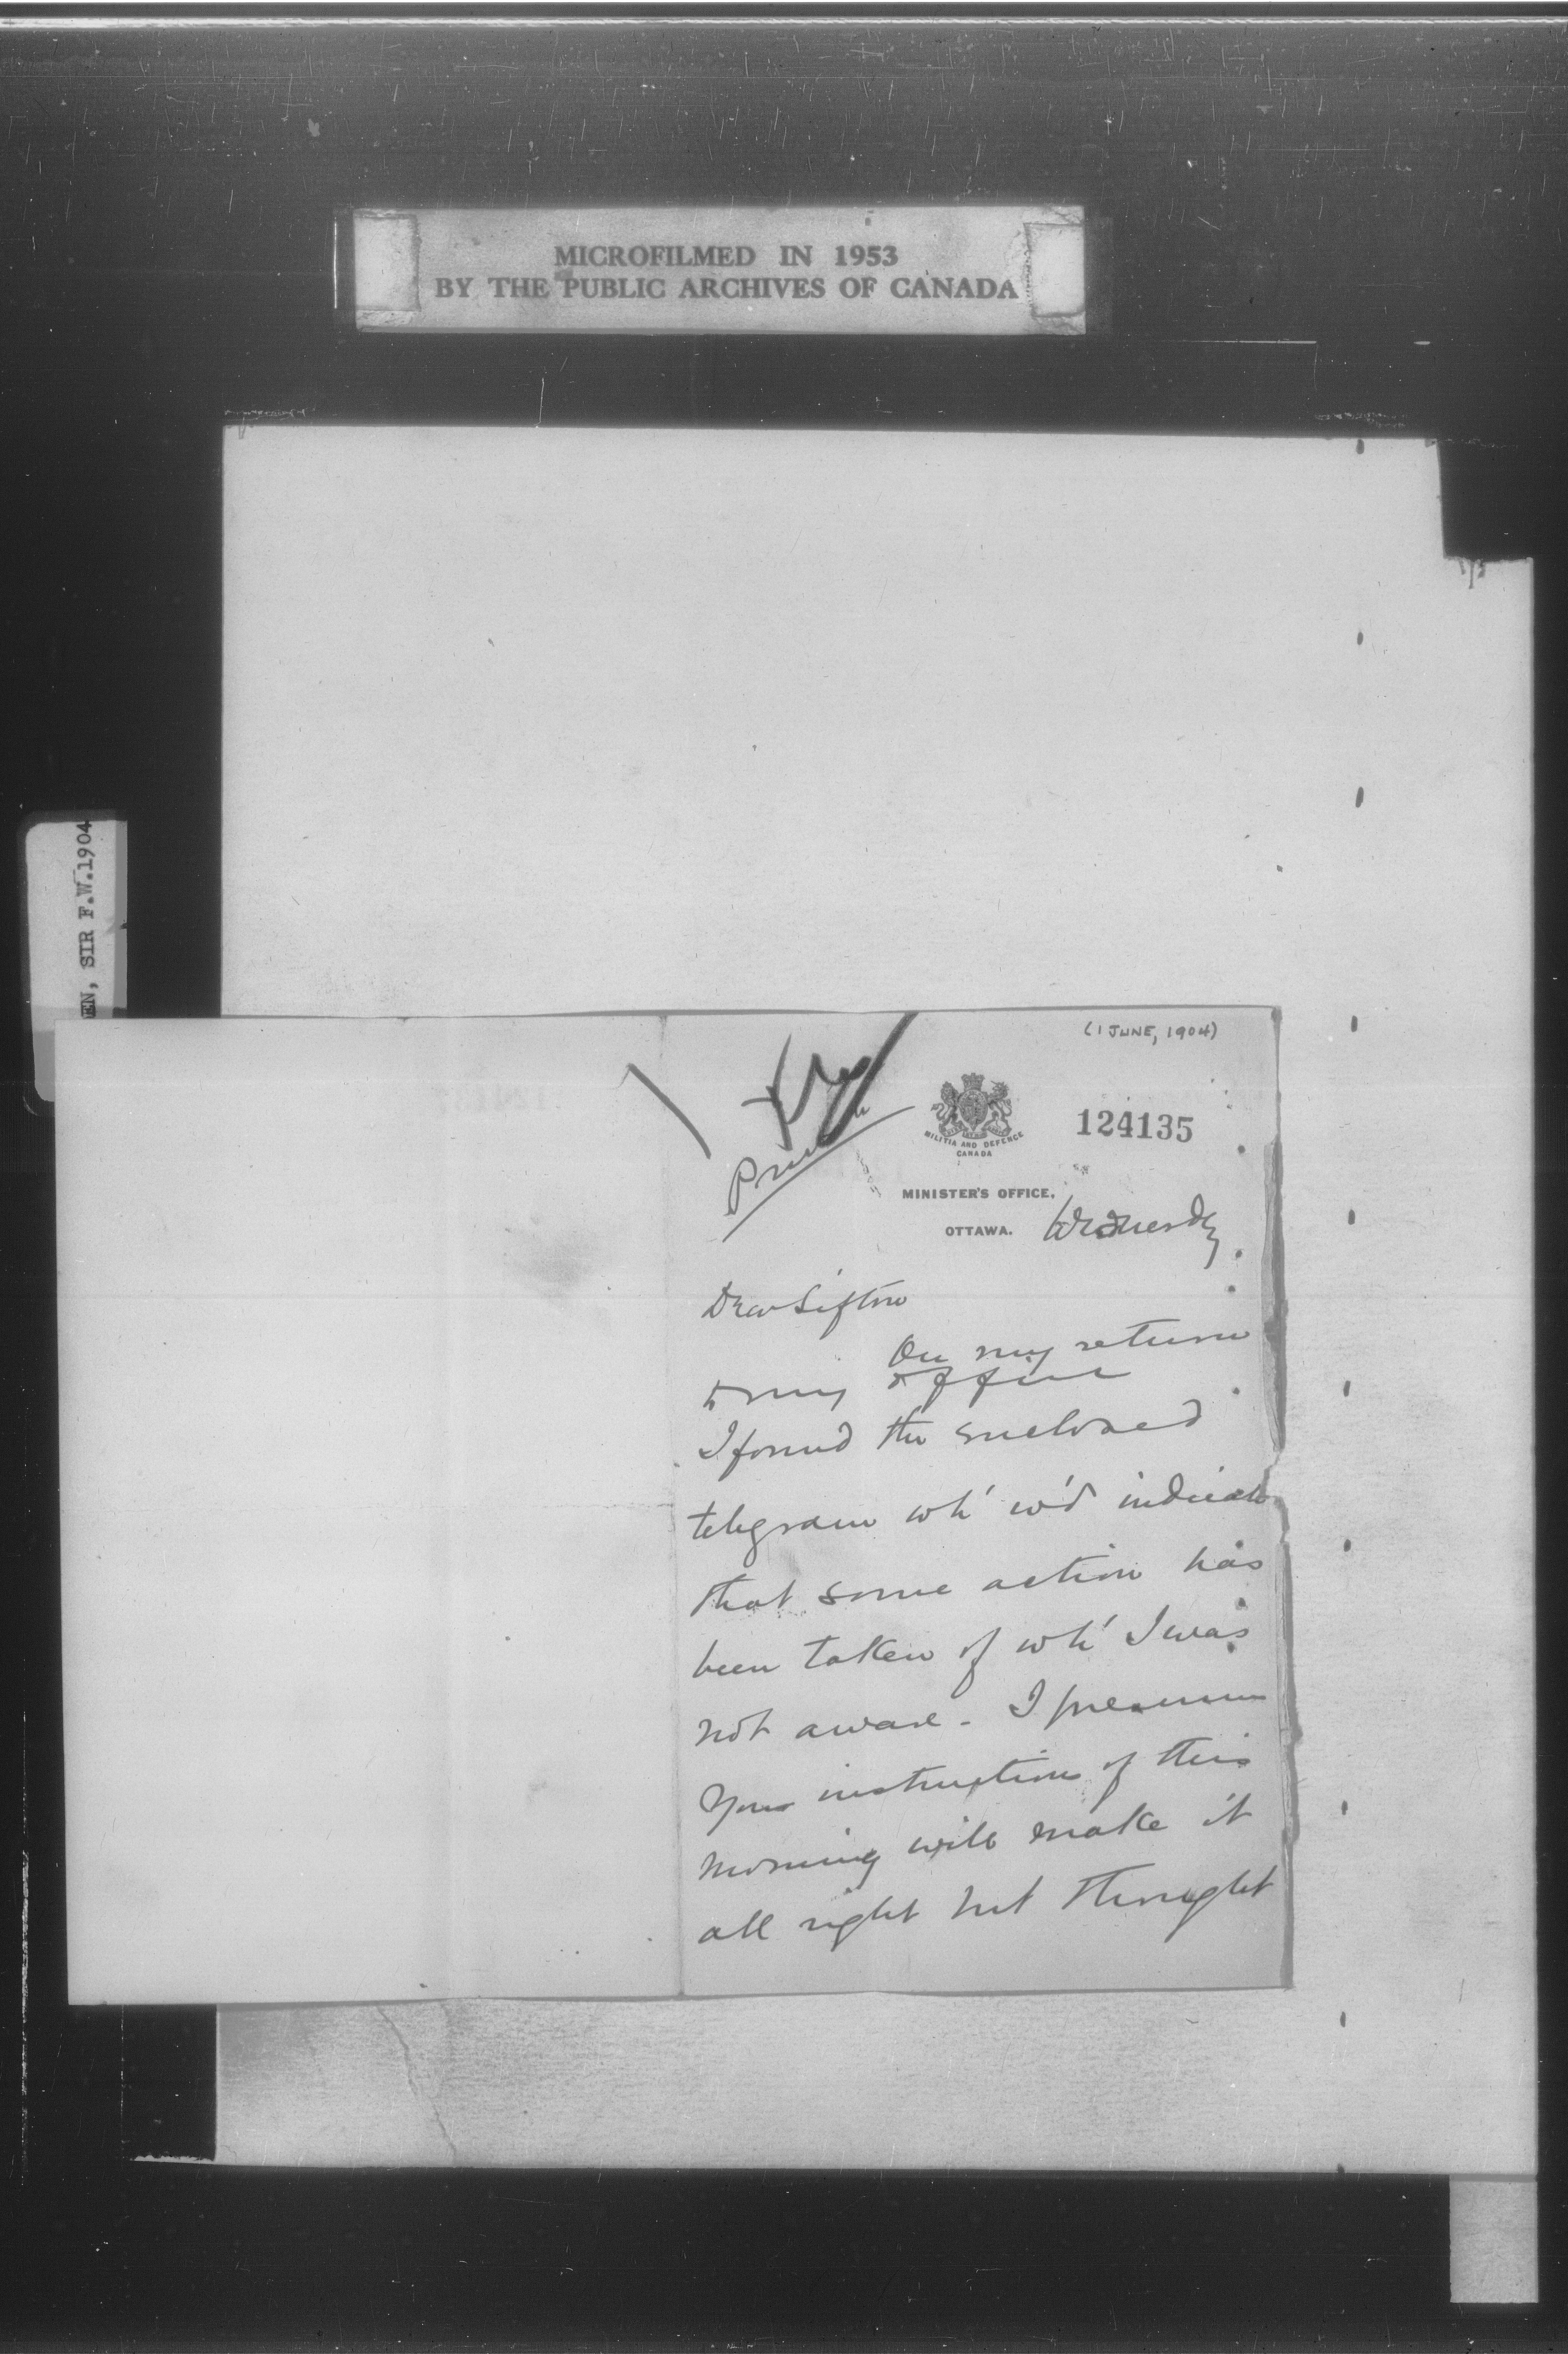 MICROFILMED IN 1953
BY THE PUBLIC ARCHIVES OF CANADA
EN, SIR F.W.1904
(1 JUNE, 1904)
Private
MILITIA AND DEFENCE
CANADA
124135
MINISTER'S OFFICE,
OTTAWA. Wednesdy
Dear Sifton
On my return
to my office
I found the enclosed
telegram wh' w'd indicate
that some action has
been taken of wh' I was
not aware - I presume
Your instructions of this
morning will make it
all right but thought